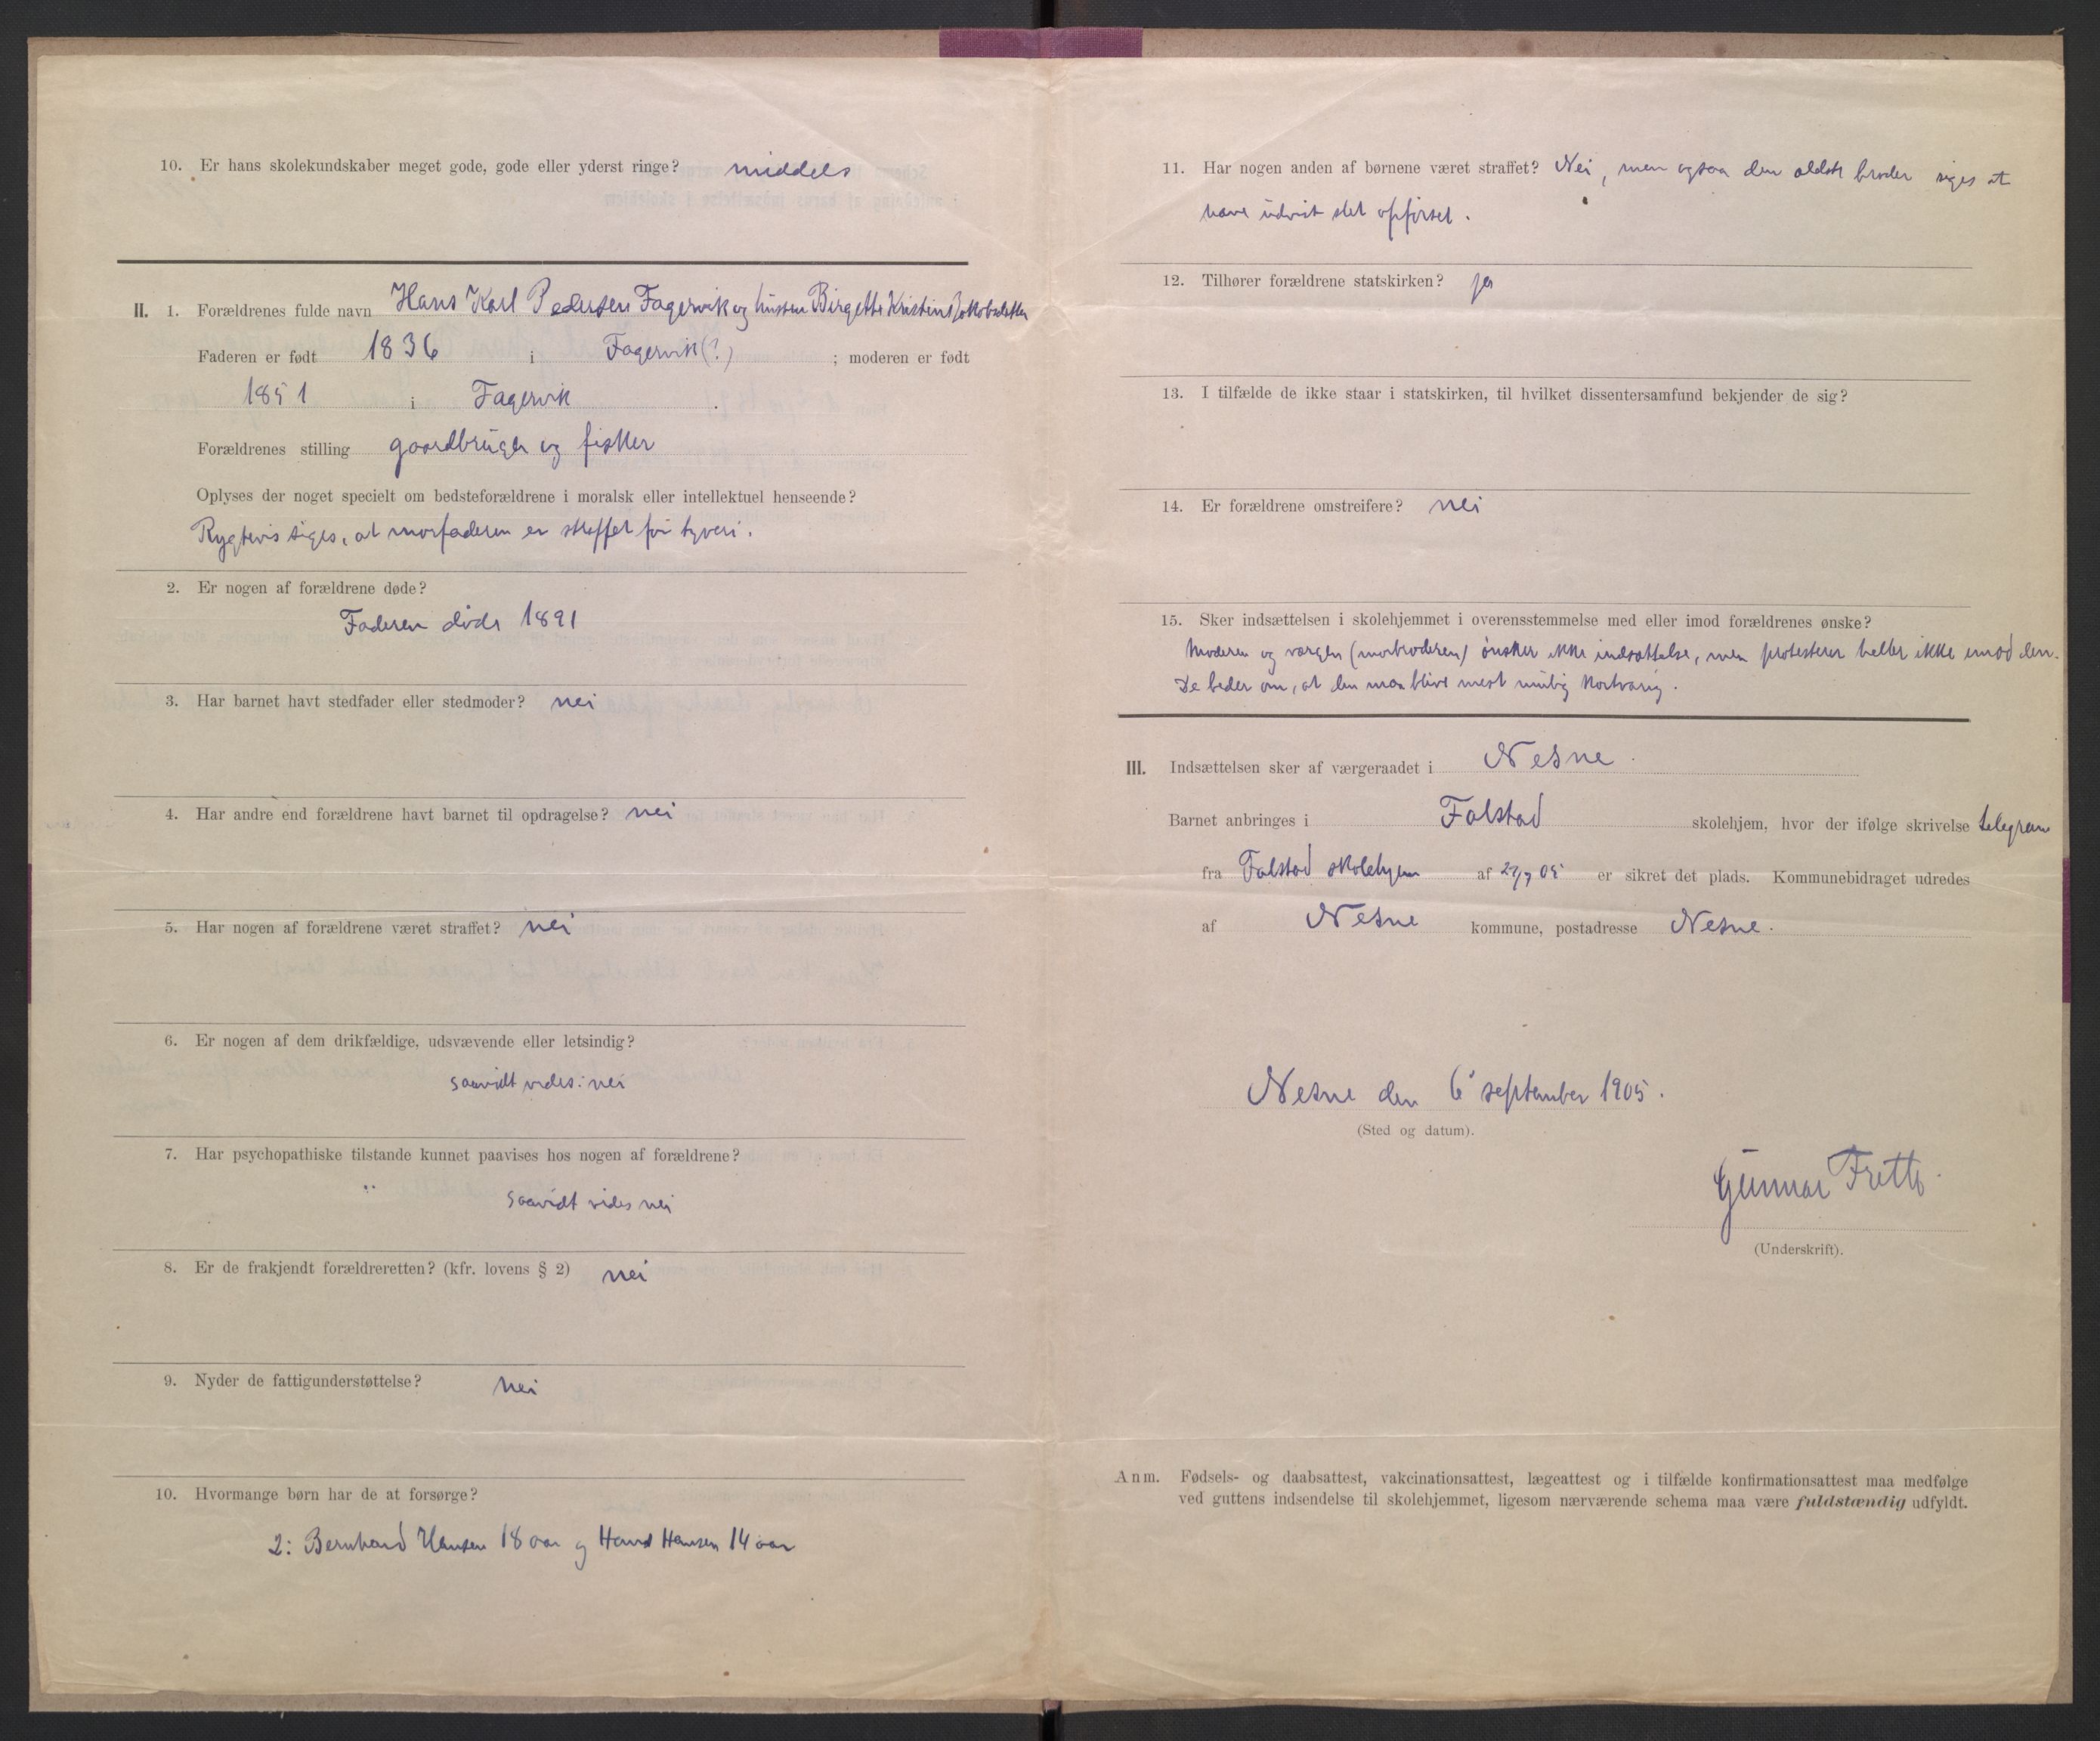 10. Er hans skolekundskaber meget gode, gode eller yderst ringe? middels
II. 1. Forældrenes fulde navn Hans Karl Pedersen Fagervik og hustru Birgette Kristine Jakobsdatter
Faderen er født 1836 i Fagervik (?) ; moderen er født
1851 i Fagervik .
Forældrenes stilling gaardbruger og fisker
Oplyses der noget specielt om bedsteforældrene i moralsk eller intellektuel henseende?
Rygtevis siges, at morfaderen er straffet for tyveri.
2. Er nogen af forældrene døde?
Faderen døde 1891
3. Har barnet havt stedfader eller stedmoder? nei
4. Har andre end forældrene havt barnet til opdragelse? nei
5. Har nogen af forældrene været straffet? nei
6. Er nogen af dem drikfældige, udsvævende eller letsindig?
saavidt vides: nei
7. Har psychopathiske tilstande kunnet paavises hos nogen af forældrene?
saavidt vides nei
8. Er de frakjendt forældreretten? (kfr. lovens § 2) nei
9. Nyder de fattigunderstøttelse? nei
10. Hvormange børn har de at forsørge?
2: Bernhard Hansen 18 aar og Hans Hansen 14 aar
11. Har nogen anden af børnene været straffet? Nei, men ogsaa den ældste broder siges at
have udvist slet opførsel.
12. Tilhører forældrene statskirken? ja
13. I tilfælde de ikke staar i statskirken, til hvilket dissentersamfund bekjender de sig?
14. Er forældrene omstreifere? nei
15. Sker indsættelsen i skolehjemmet i overensstemmelse med eller imod forældrenes ønske?
Moderen og værgen (morbroderen) ønsker ikke indsættelse, men protesterer heller ikke imod den.
De beder om, at den maa blive mest mulig kortvarig.
III. Indsættelsen sker af værgeraadet i Nesne.
Barnet anbringes i Falstad skolehjem, hvor der ifølge skrivelse telegram
fra Falstad skolehjem af 29/7 05 er sikret det plads. Kommunebidraget udredes
af Nesne kommune, postadresse Nesne.
Nesne den 6 september 1905.
(Sted og datum).
Gunnar
(Underskrift).
Anm. Fødsels- og daabsattest, vakcinationsattest, lægeattest og i tilfælde konfirmationsattest maa medfølge
ved guttens indsendelse til skolehjemmet, ligesom nærværende schema maa være fuldstændig udfyldt.